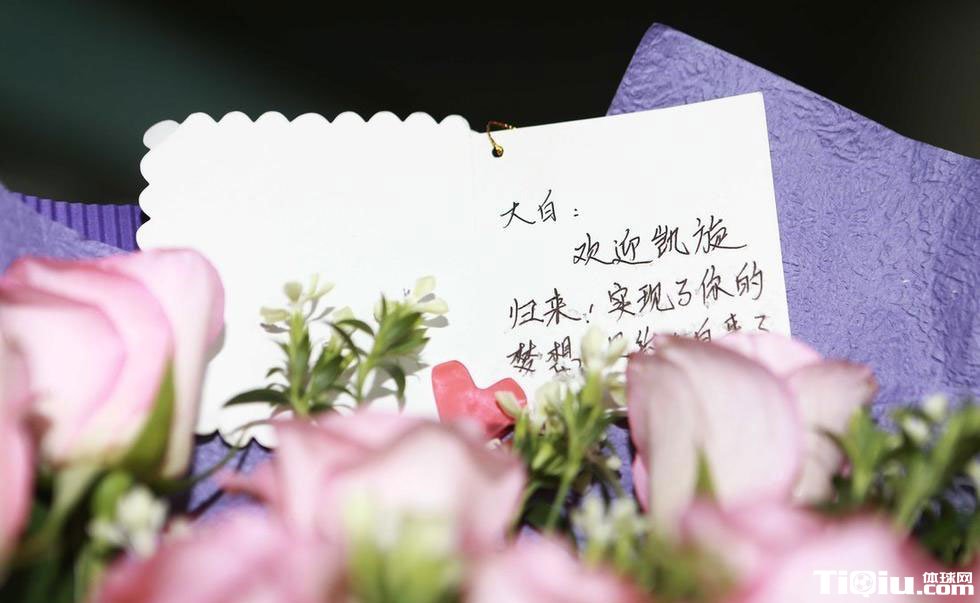 大白:
欢迎凯旋
归来!实现了你的
梦想
TiQiu 体球网
.com